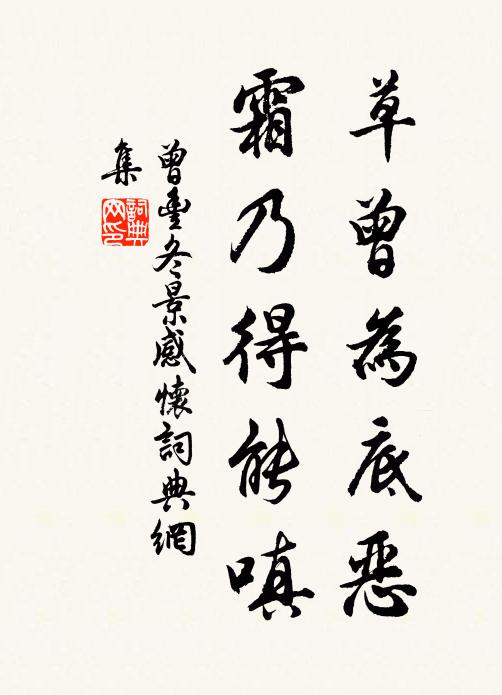 草曾為底惡
霜乃得能嗔
曾豐冬景感懷詞典網
集
詞典網印